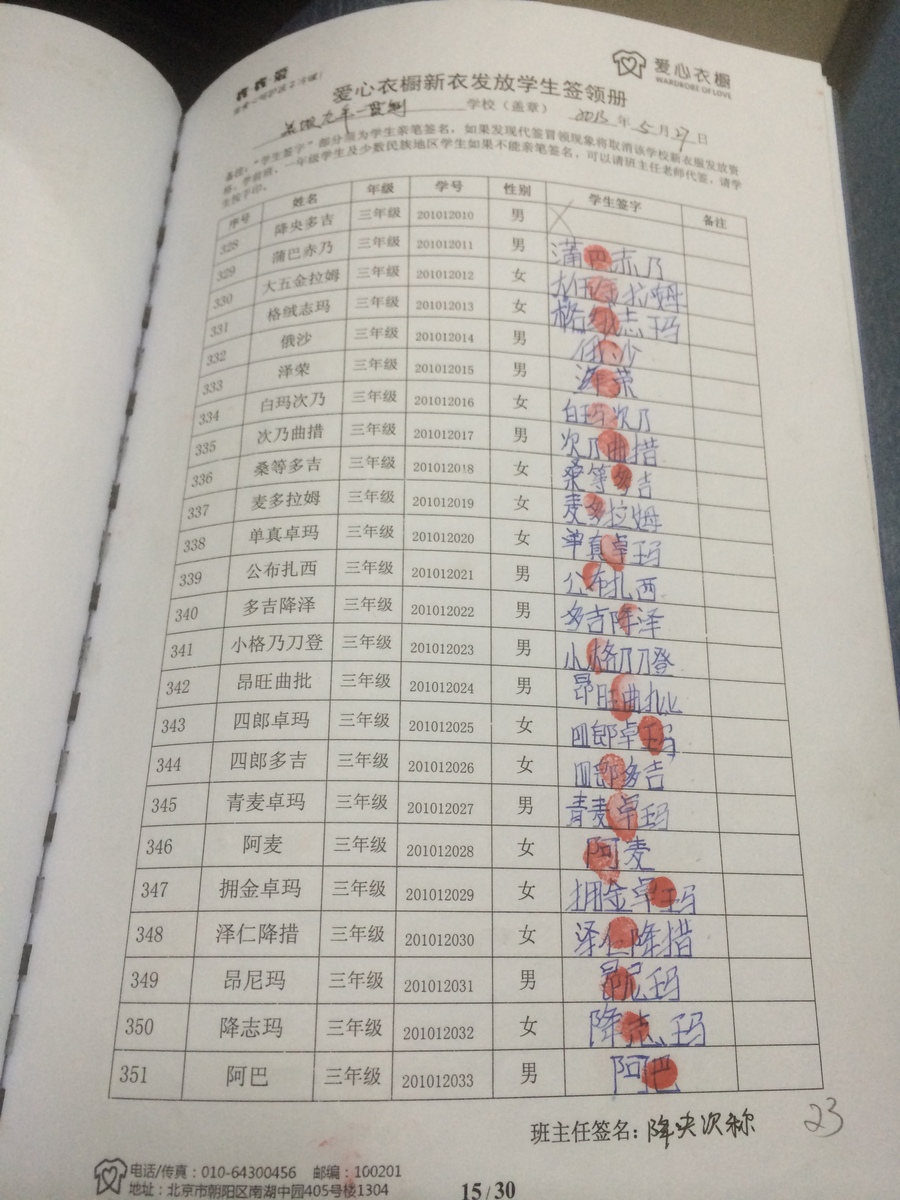 爱心衣橱
WARDROBE OF LOVE
爱心衣橱新衣发放学生签领册
九年一贯制 学校（盖章） 2013年5月27日
备注："学生签字"部分须为学生亲笔签名，如果发现代签冒领现象将取消该学校新衣服发放资
格，学前班、一年级学生及少数民族地区学生如果不能亲笔签名，可以请班主任老师代签，请学
生按手印。
序号 姓名 年级 学号 性别 学生签字 备注
328 降央多吉 三年级 201012010 男 X
329 蒲巴赤乃 三年级 201012011 男 蒲巴赤乃
330 大五金拉姆 三年级 201012012 女 大五金拉姆
331 格绒志玛 三年级 201012013 女 格绒志玛
332 俄沙 三年级 201012014 男 俄沙
333 泽荣 三年级 201012015 男 泽荣
334 白玛次乃 三年级 201012016 女 白玛次乃
335 次乃曲措 三年级 201012017 男 次乃曲措
336 桑等多吉 三年级 201012018 女 桑等多吉
337 麦多拉姆 三年级 201012019 女 麦多拉姆
338 单真卓玛 三年级 201012020 女 单真卓玛
339 公布扎西 三年级 201012021 男 公布扎西
340 多吉降泽 三年级 201012022 男 多吉降泽
341 小格乃刀登 三年级 201012023 男 小格乃刀登
342 昂旺曲批 三年级 201012024 男 昂旺曲批
343 四郎卓玛 三年级 201012025 女 四郎卓玛
344 四郎多吉 三年级 201012026 女 四郎多吉
345 青麦卓玛 三年级 201012027 男 青麦卓玛
346 阿麦 三年级 201012028 女 阿麦
347 拥金卓玛 三年级 201012029 女 拥金卓玛
348 泽仁降措 三年级 201012030 女 泽仁降措
349 昂尼玛 三年级 201012031 男 昂尼玛
350 降志玛 三年级 201012032 女 降志玛
351 阿巴 三年级 201012033 男 阿巴
班主任签名：降央次称 23
电话/传真：010-64300456 邮编：100201
地址：北京市朝阳区南湖中园405号楼1304
15/30